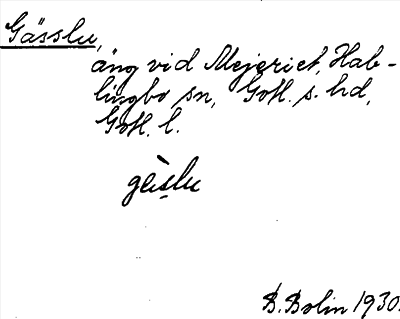 Gässlu,
äng vid Mejeriet, Hab-
lingbo sn, Gotl. s. hd,
Gotl. l.
gèi̯slu
B. Bolin 1930.